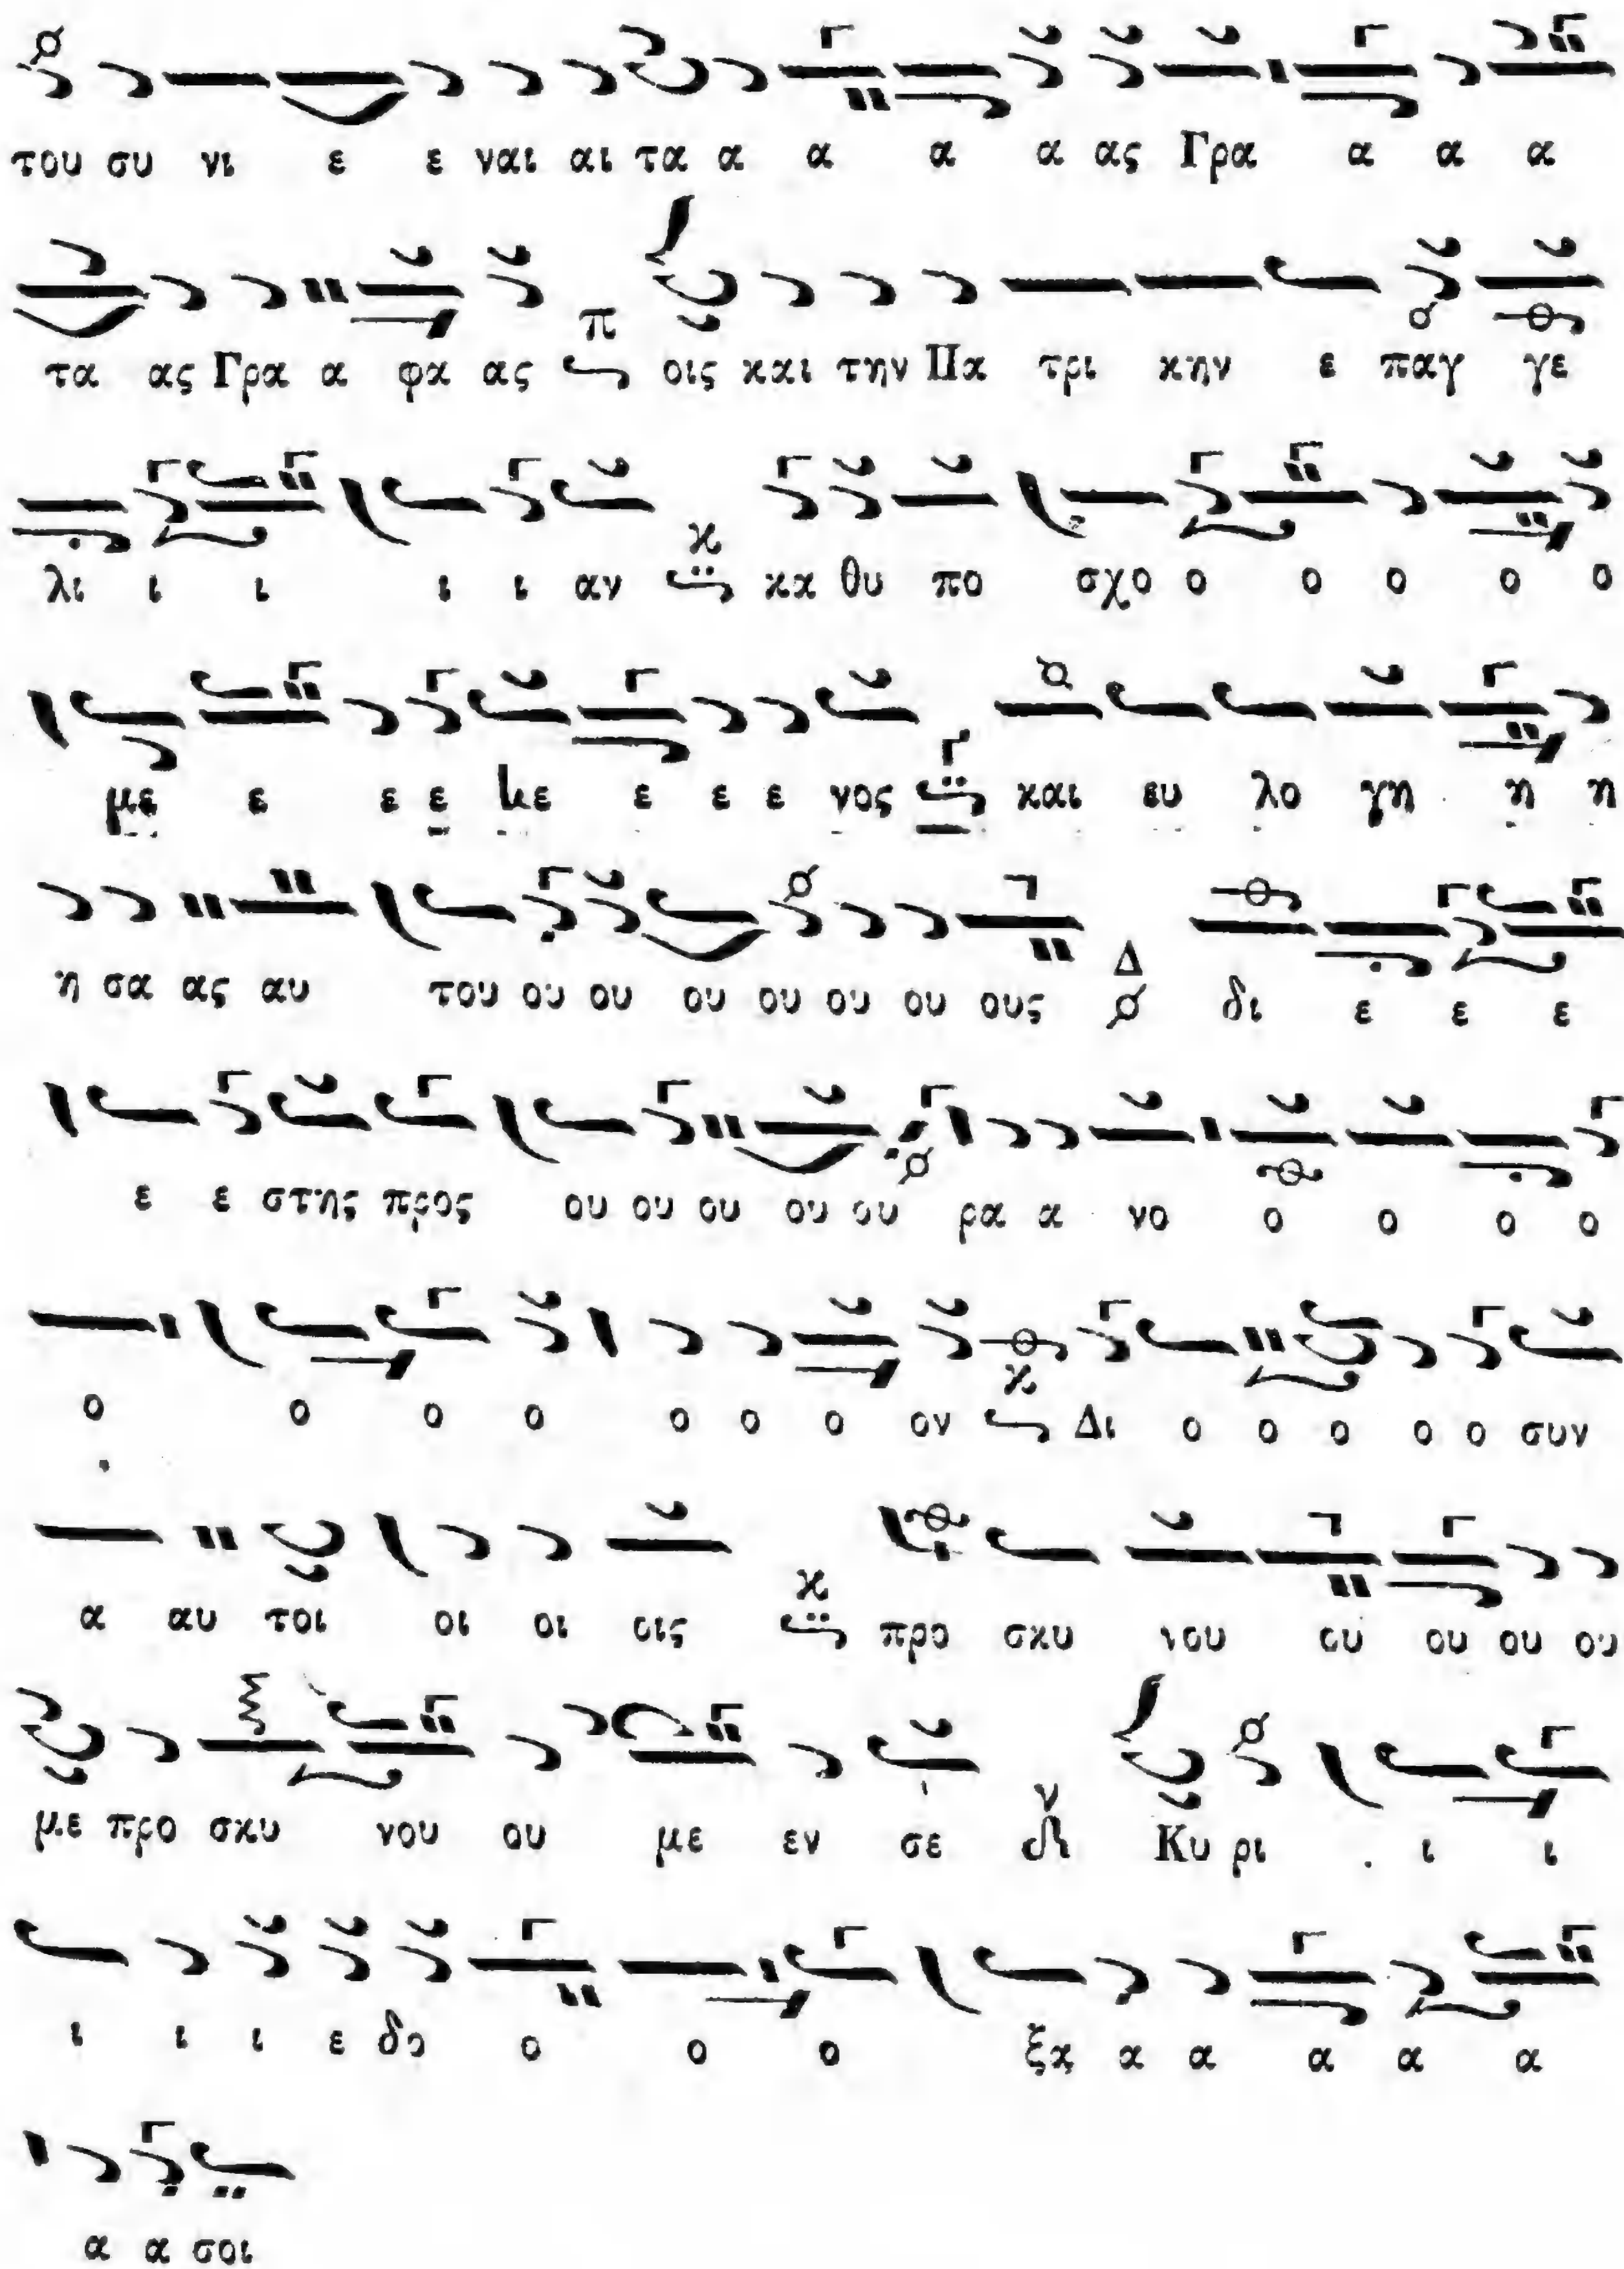 του συ νι ε ε ναι αι τα α α α α ας Γρα α α α
τα ας Γρα α φα ας π οις και την Πα τρι κην ε παγ γε
λι ι ι ι ι αν κ κα θυ πο σχο ο ο ο ο ο
με ε ε ε με ε ε ε νος Γ και ευ λο γη η η
η σα ας αυ του ου ου ου ου ου ου ους Δ δι ε ε ε
ε ε στης προς ου ου ου ου ου ρα α νο ο ο ο ο
ο ο ο ο ο ο ο ον κ Δι ο ο ο ο ο συν
α αυ τοι οι οι οις κ προ σκυ νου ου ου ου ου
με προ σκυ νου ου με εν σε ν Κυ ρι ι ι
ι ι ι ε δο ο ο ο ξα α α α α α
α α σοι